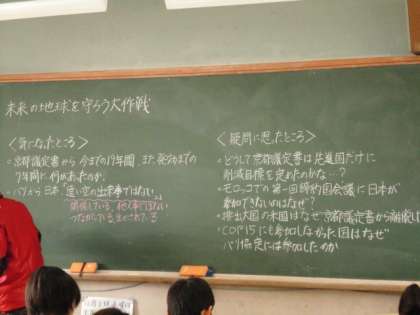 未来の地球を守ろう大作戦
<気になったところ>
◦京都議定書から今までの19年間、また、発効までの
7年間に何があったのか。
◦パリから日本「遠い空の出来事ではない」
関係している 他人事ではない
つながっている 生かされている
<疑問に思ったところ>
◦どうして京都議定書は先進国だけに
削減目標を定めたのかな…?
◦モロッコでの第一回締約国会議に日本が
参加できないのはなぜ?
◦排出大国の米国はなぜ京都議定書から離脱し
◦COP15にも参加しなかった国はなぜ
パリ協定には参加したのか